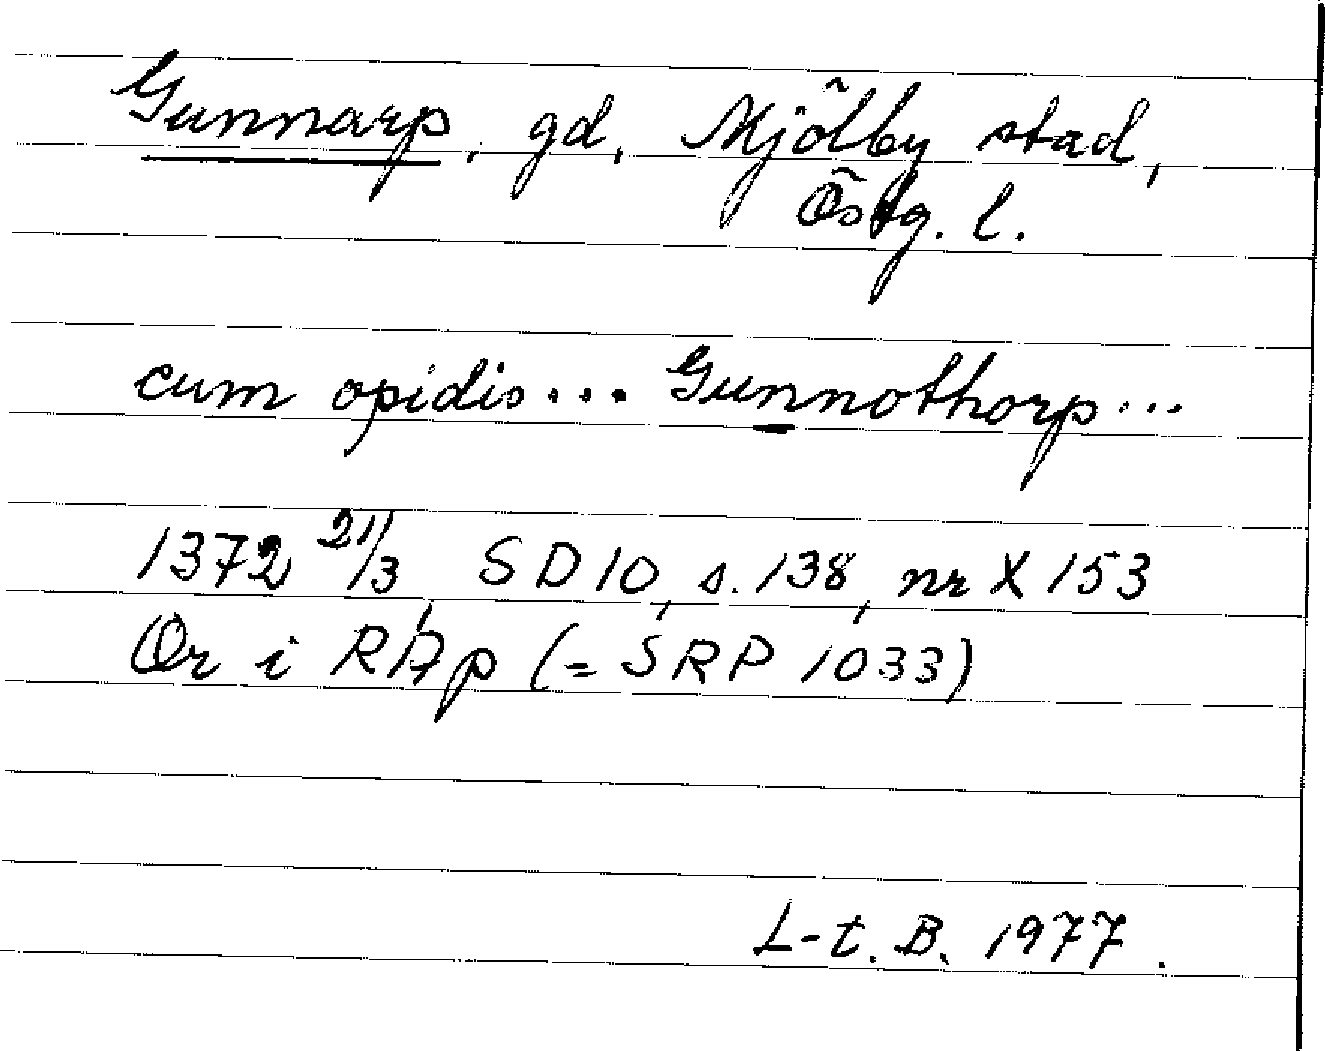 Gunnarp, gd, Mjölby stad,
Östg. l.
cum opidis... Gunnothorp...
1372 21/3, SD 10, s. 138, nr X 153
Or i RAp (= SRP 1033)
L-t. B. 1977.